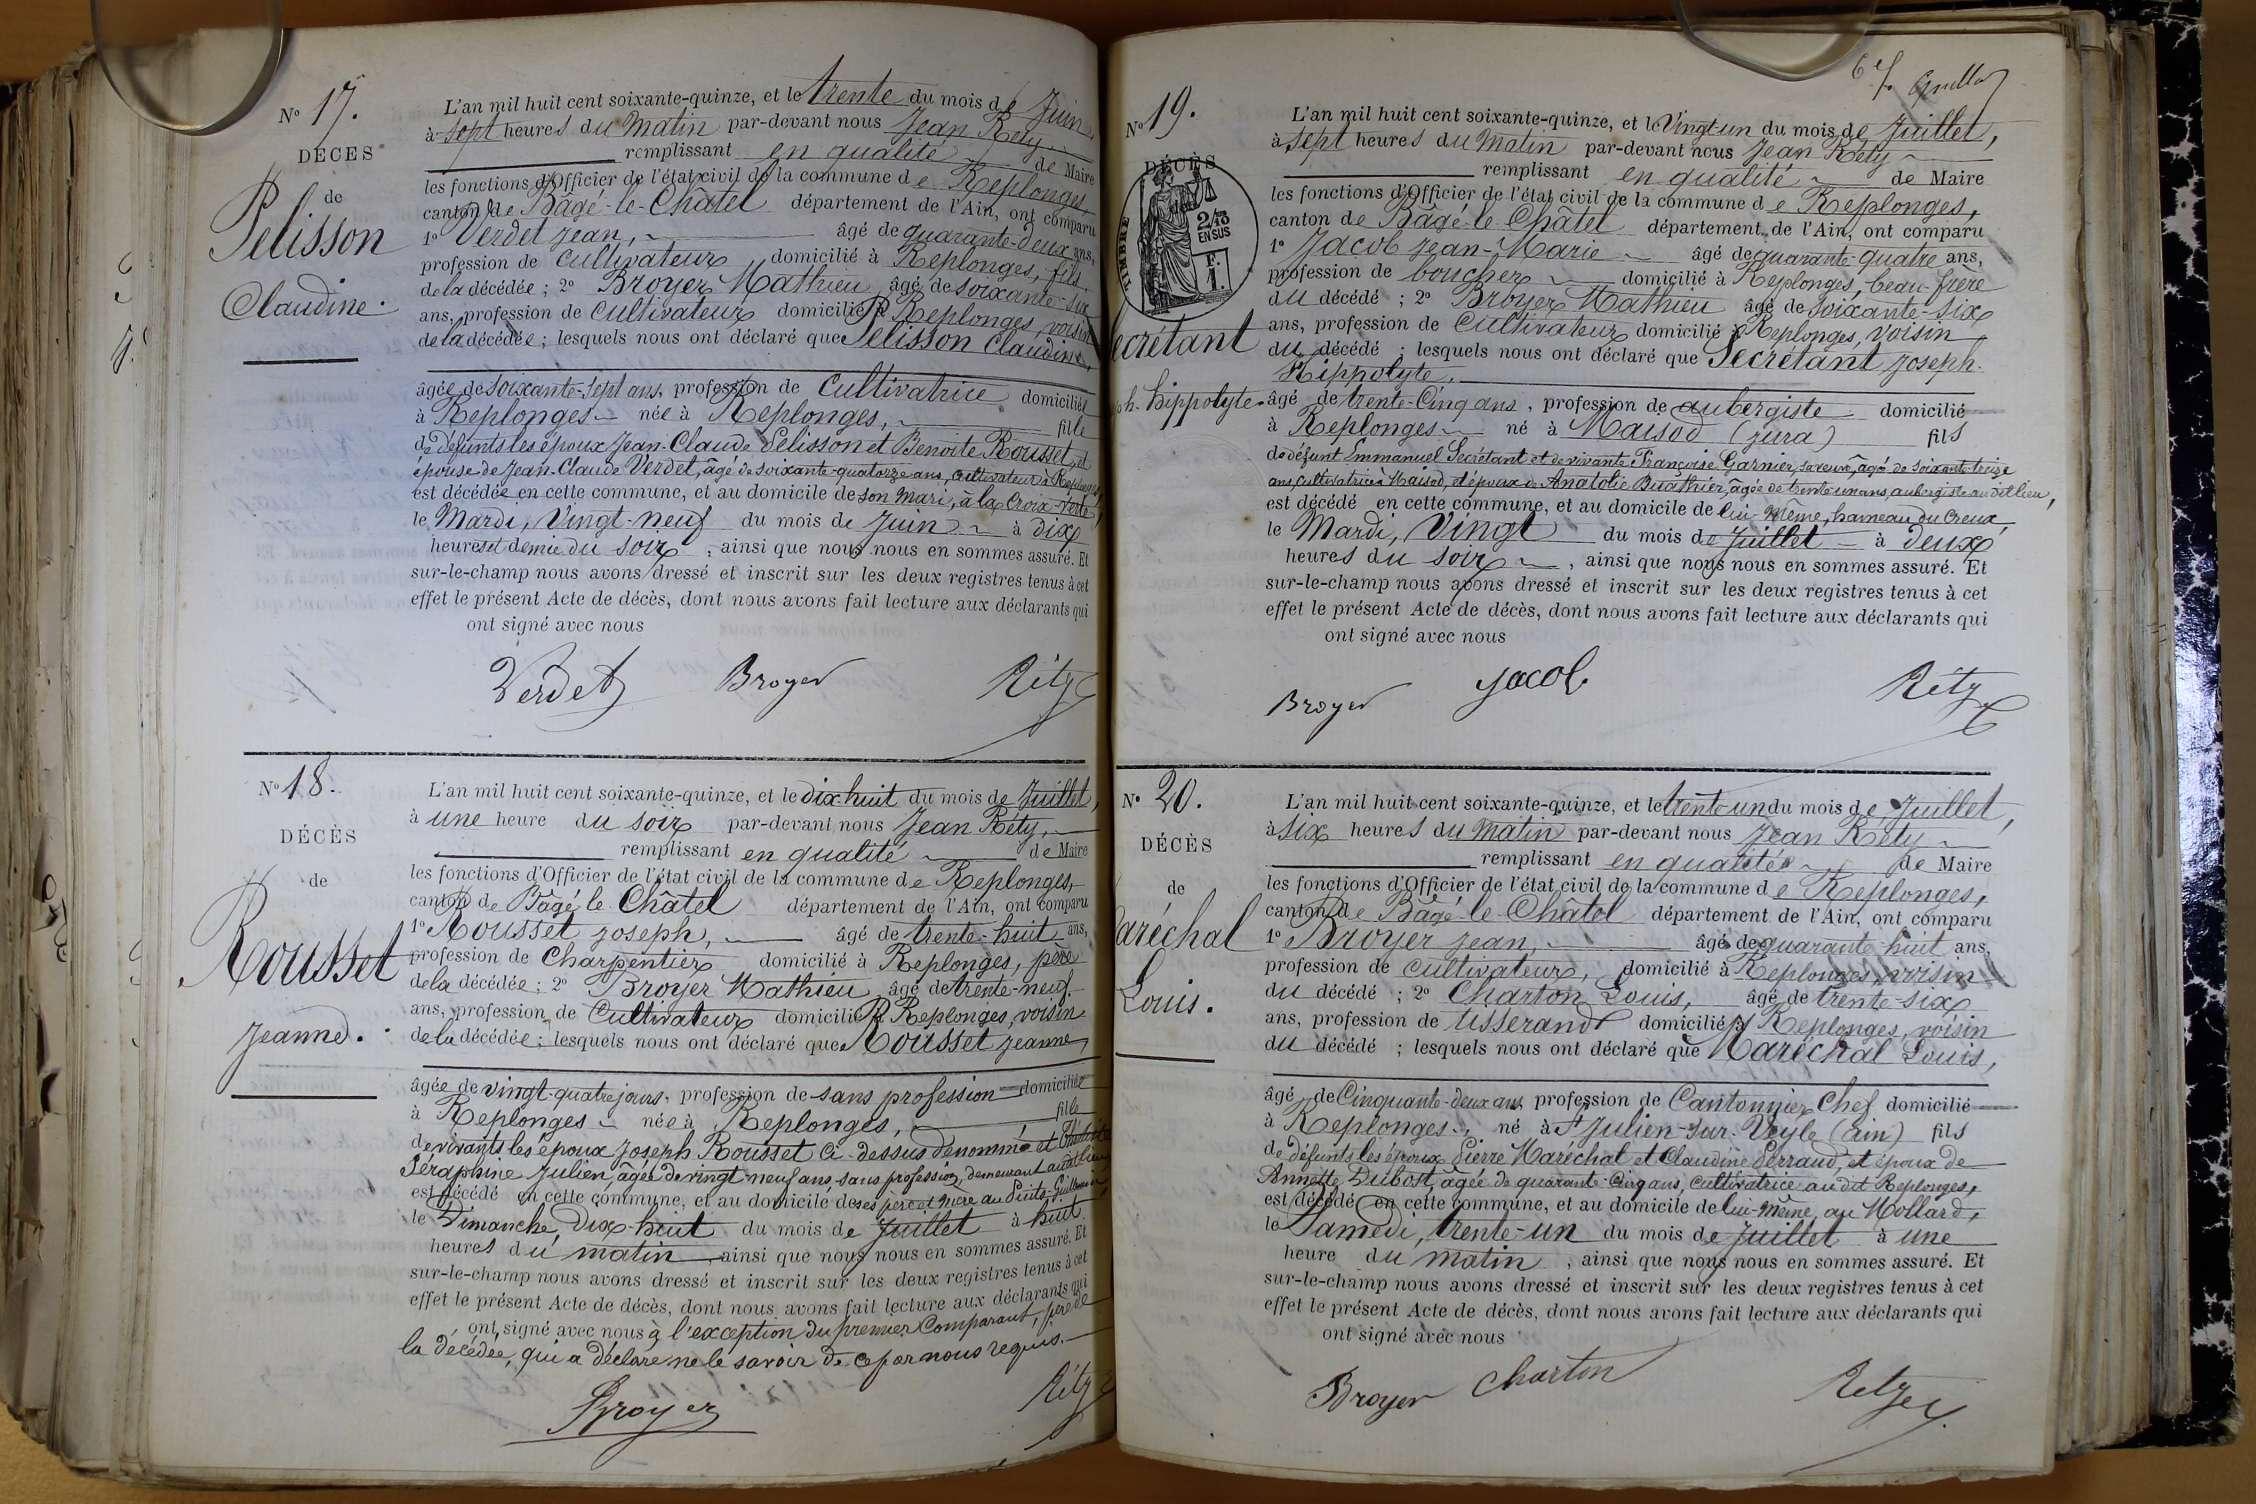 N° 17.
DÉCÈS
de
Pelisson
Claudine.
L'an mil huit cent soixante-quinze, et le trente du mois de Juin,
à sept heures du matin par-devant nous Jean Réty
remplissant en qualité de Maire
les fonctions d'Officier de l'état civil de la commune de Replonges,
canton de Bâgé-le-Châtel département de l'Ain, ont comparu
1° Verdet Jean, âgé de quarante-deux ans,
profession de cultivateur domicilié à Replonges, fils
de la décédée ; 2° Broyer Mathieu âgé de soixante-six
ans, profession de cultivateur domicilié à Replonges, voisin
de la décédée ; lesquels nous ont déclaré que Pelisson Claudine,
âgée de soixante-sept ans, profession de cultivatrice domiciliée
à Replonges née à Replonges, fille
de défunts les époux Jean-Claude Pelisson et Benoite Rousset, et
épouse de Jean-Claude Verdet, âgé de soixante-quatorze ans, cultivateur à Replonges,
est décédée en cette commune, et au domicile de son mari, à la Croix-verte,
le Mardi, vingt-neuf du mois de Juin à dix
heures et demie du soir, ainsi que nous nous en sommes assuré. Et
sur-le-champ nous avons dressé et inscrit sur les deux registres tenus à cet
effet le présent Acte de décès, dont nous avons fait lecture aux déclarants qui
ont signé avec nous
Verdet Broyer Réty
N° 18.
DÉCÈS
de
Rousset
Jeanne.
L'an mil huit cent soixante-quinze, et le dix-huit du mois de Juillet,
à une heure du soir par-devant nous Jean Réty,
remplissant en qualité de Maire
les fonctions d'Officier de l'état civil de la commune de Replonges,
canton de Bâgé-le-Châtel département de l'Ain, ont comparu
1° Rousset Joseph, âgé de trente-huit ans,
profession de Charpentier domicilié à Replonges, père
de la décédée ; 2° Broyer Mathieu âgé de trente-neuf
ans, profession de Cultivateur domicilié à Replonges, voisin
de la décédée ; lesquels nous ont déclaré que Rousset Jeanne,
âgée de vingt-quatre jours, profession de sans profession domiciliée
à Replonges née à Replonges, fille
de vivants les époux Joseph Rousset ci-dessus dénommé et
Séraphine Julien, âgée de vingt neuf ans, sans profession, demeurant audit lieu
est décédé en cette commune, et au domicile de ses père et mère au Puits-Guillemin
le Dimanche, Dix-huit du mois de Juillet à huit
heures du matin, ainsi que nous nous en sommes assuré. Et
sur-le-champ nous avons dressé et inscrit sur les deux registres tenus à cet
effet le présent Acte de décès, dont nous avons fait lecture aux déclarants qui
ont signé avec nous à l'exception du premier Comparant, père de
la décédée, qui a déclaré ne le savoir de ce par nous requis.
Broyer Réty
6e f.
N° 19.
DÉCÈS
TIMBRE
2/10
EN SUS
F.
1.
ecrétant
ph-hippolyte.
L'an mil huit cent soixante-quinze, et le Vingt-un du mois de Juillet,
à sept heures du matin par-devant nous Jean Réty
remplissant en qualité de Maire
les fonctions d'Officier de l'état civil de la commune de Replonges,
canton de Bâgé-le-Châtel département de l'Ain, ont comparu
1° Jacob Jean-Marie âgé de quarante-quatre ans,
profession de boucher domicilié à Replonges, beau-frère
du décédé ; 2° Broyer Mathieu âgé de soixante-six
ans, profession de Cultivateur domicilié à Replonges, voisin
du décédé ; lesquels nous ont déclaré que Secrétant Joseph-
Hippolyte,
âgé de trente-cinq ans, profession de aubergiste domicilié
à Replonges né à Maisod (Jura) fils
de défunt Emmanuel Secrétant et de vivante Françoise Garnier, sa veuve, âgée de soixante-treize
ans, cultivatrice à Maisod, et époux de Anatolie Buathier, âgée de trente un ans, aubergiste au dit lieu,
est décédé en cette commune, et au domicile de lui-même, hameau du Creux,
le Mardi, Vingt du mois de Juillet à deux
heures du soir, ainsi que nous nous en sommes assuré. Et
sur-le-champ nous avons dressé et inscrit sur les deux registres tenus à cet
effet le présent Acte de décès, dont nous avons fait lecture aux déclarants qui
ont signé avec nous
Broyer Jacob Réty
N° 20.
DÉCÈS
de
aréchal
Louis.
L'an mil huit cent soixante-quinze, et le trente-un du mois de Juillet,
à six heures du matin par-devant nous Jean Réty
remplissant en qualité de Maire
les fonctions d'Officier de l'état civil de la commune de Replonges,
canton de Bâgé-le-Châtel département de l'Ain, ont comparu
1° Broyer Jean, âgé de quarante-huit ans,
profession de cultivateur, domicilié à Replonges, voisin
du décédé ; 2° Charton Louis, âgé de trente-six
ans, profession de tisserand domicilié à Replonges, voisin
du décédé ; lesquels nous ont déclaré que Maréchal Louis,
âgé de Cinquante-deux ans profession de Cantonnier Chef domicilié
à Replonges né à St Julien-sur-Veyle (Ain) fils
de défunts les époux Pierre Maréchal et Claudine Perraud, et époux de
Annette Dubost, âgée de quarante-cinq ans, cultivatrice au dit Replonges,
est décédé en cette commune, et au domicile de lui-même, au Mollard,
le Samedi, trente-un du mois de Juillet à une
heure du matin, ainsi que nous nous en sommes assuré. Et
sur-le-champ nous avons dressé et inscrit sur les deux registres tenus à cet
effet le présent Acte de décès, dont nous avons fait lecture aux déclarants qui
ont signé avec nous
Broyer Charton Réty